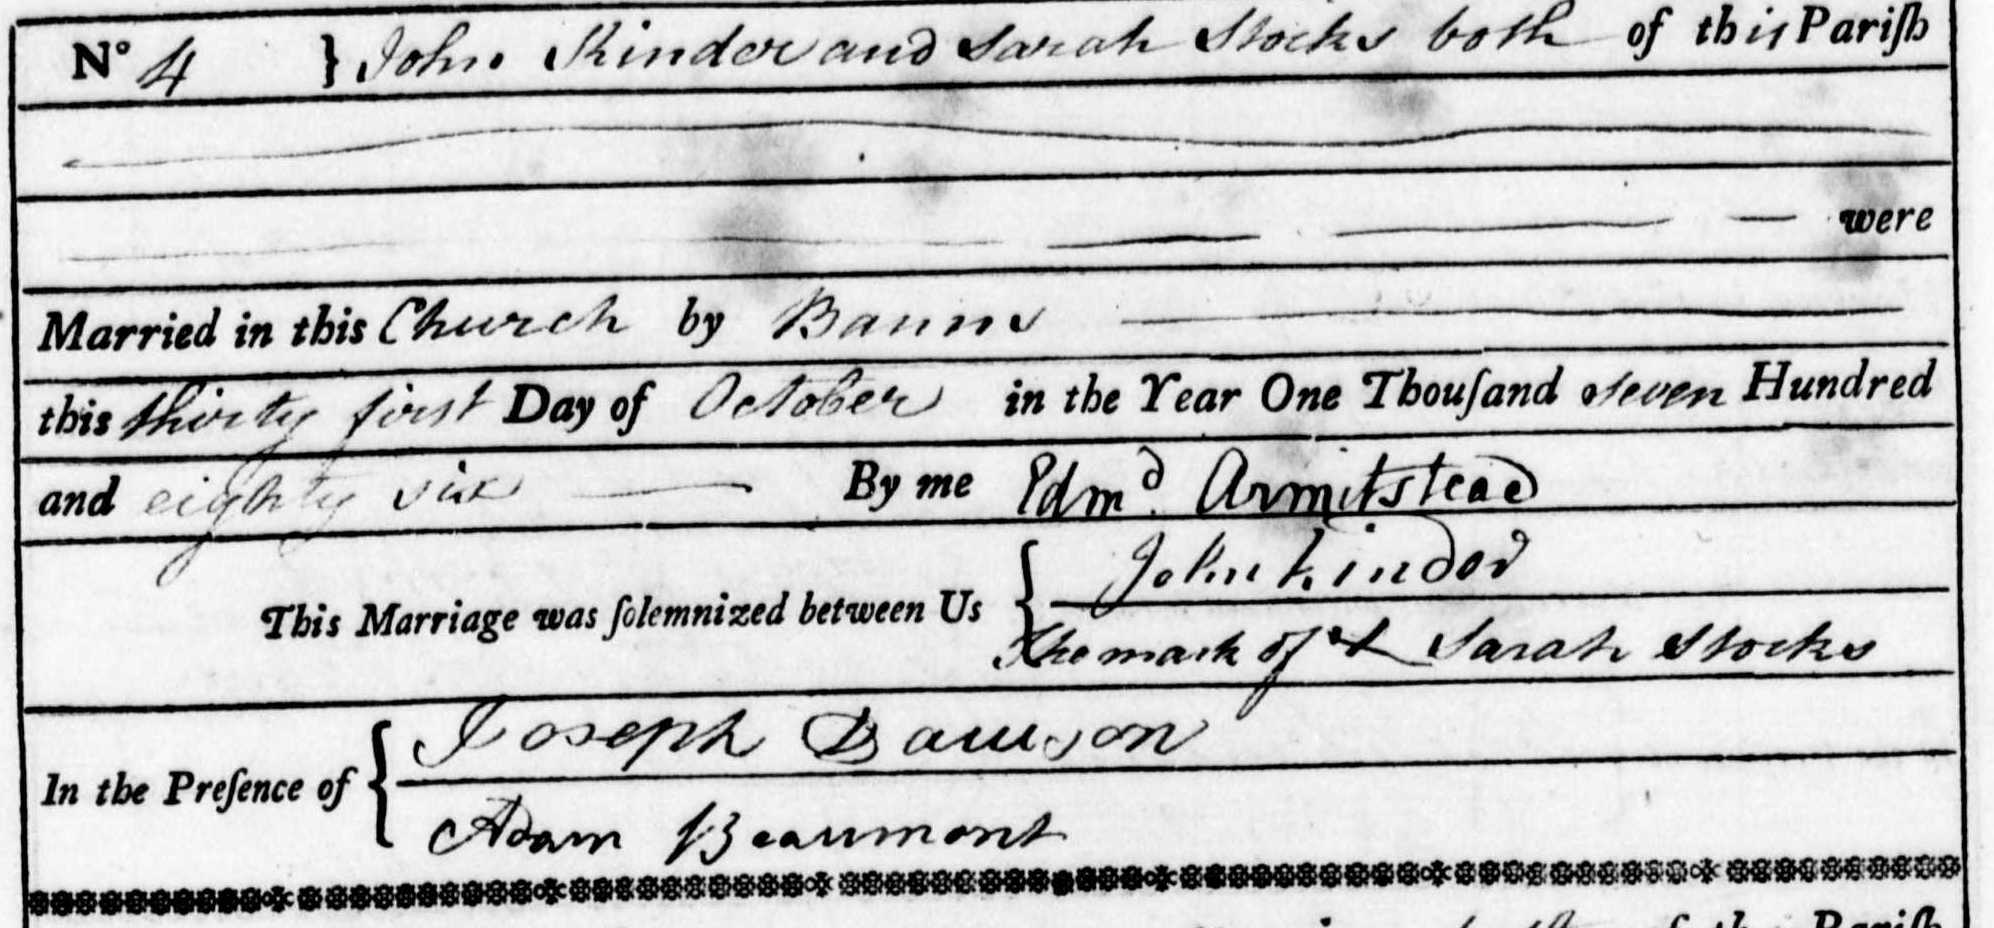 Nº 4 } John Kinder and Sarah Stocks both of this Pariſh
were
Married in this Church by Banns
this thirty first Day of October in the Year One Thouſand seven Hundred
and eighty six By me Edmd. Armitstead
This Marriage was ſolemnized between Us { John Kinder
The mark of X Sarah Stocks
In the Preſence of { Joseph Dawson
Adam Beaumont
of the Pariſh